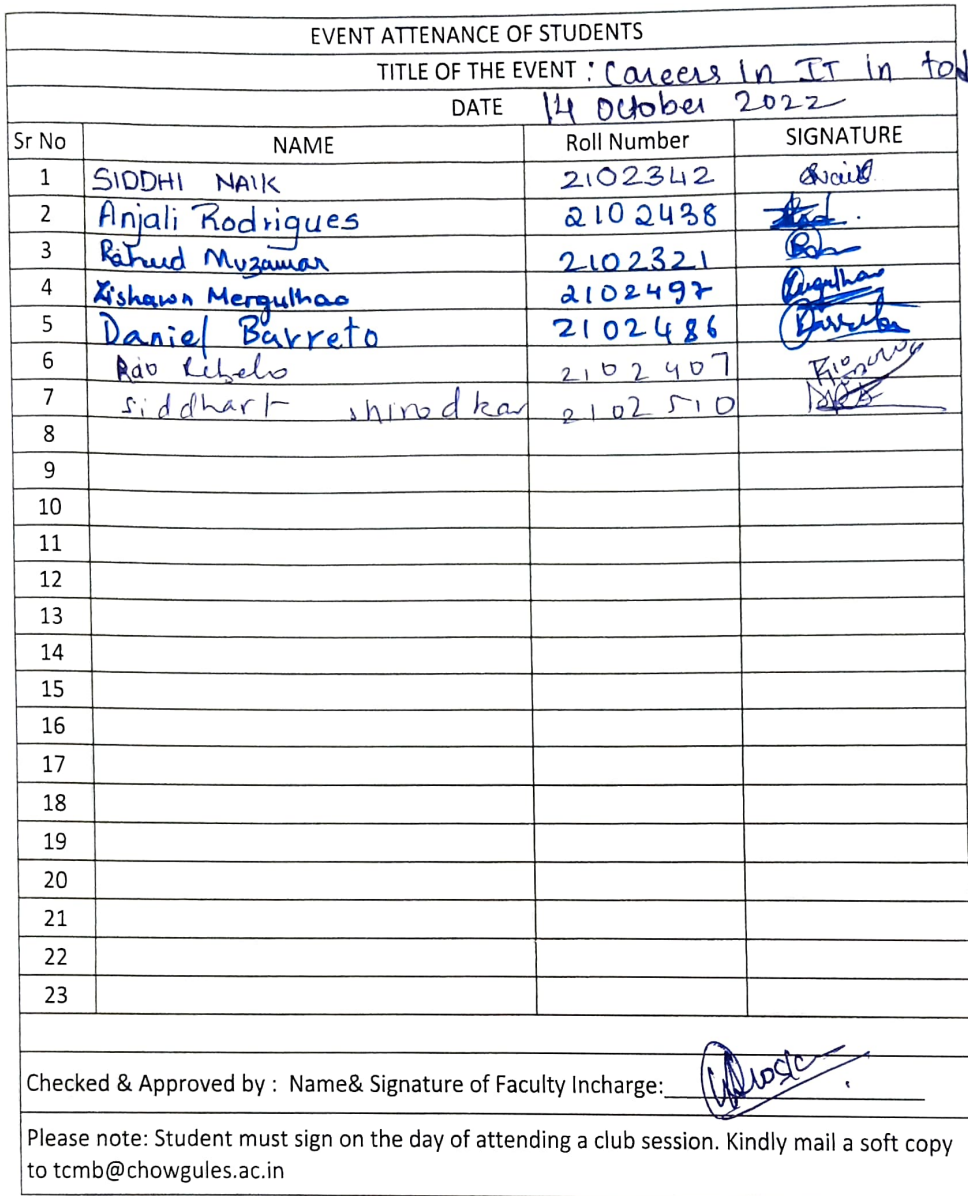 EVENT ATTENANCE OF STUDENTS
TITLE OF THE EVENT : Careers in IT in tod
DATE 14 October 2022
Sr No NAME Roll Number SIGNATURE
1 SIDDHI NAIK 2102342 SNaik
2 Anjali Rodrigues 2102438
3 Muzawar 2102321
4 Zishawn Mergulhao 2102497
5 Daniel Barreto 2102486 Barreto
6 Rebelo 2102407
7 siddhart shirodkar 2102510
8
9
10
11
12
13
14
15
16
17
18
19
20
21
22
23
Checked & Approved by : Name& Signature of Faculty Incharge:
Please note: Student must sign on the day of attending a club session. Kindly mail a soft copy
to tcmb@chowgules.ac.in